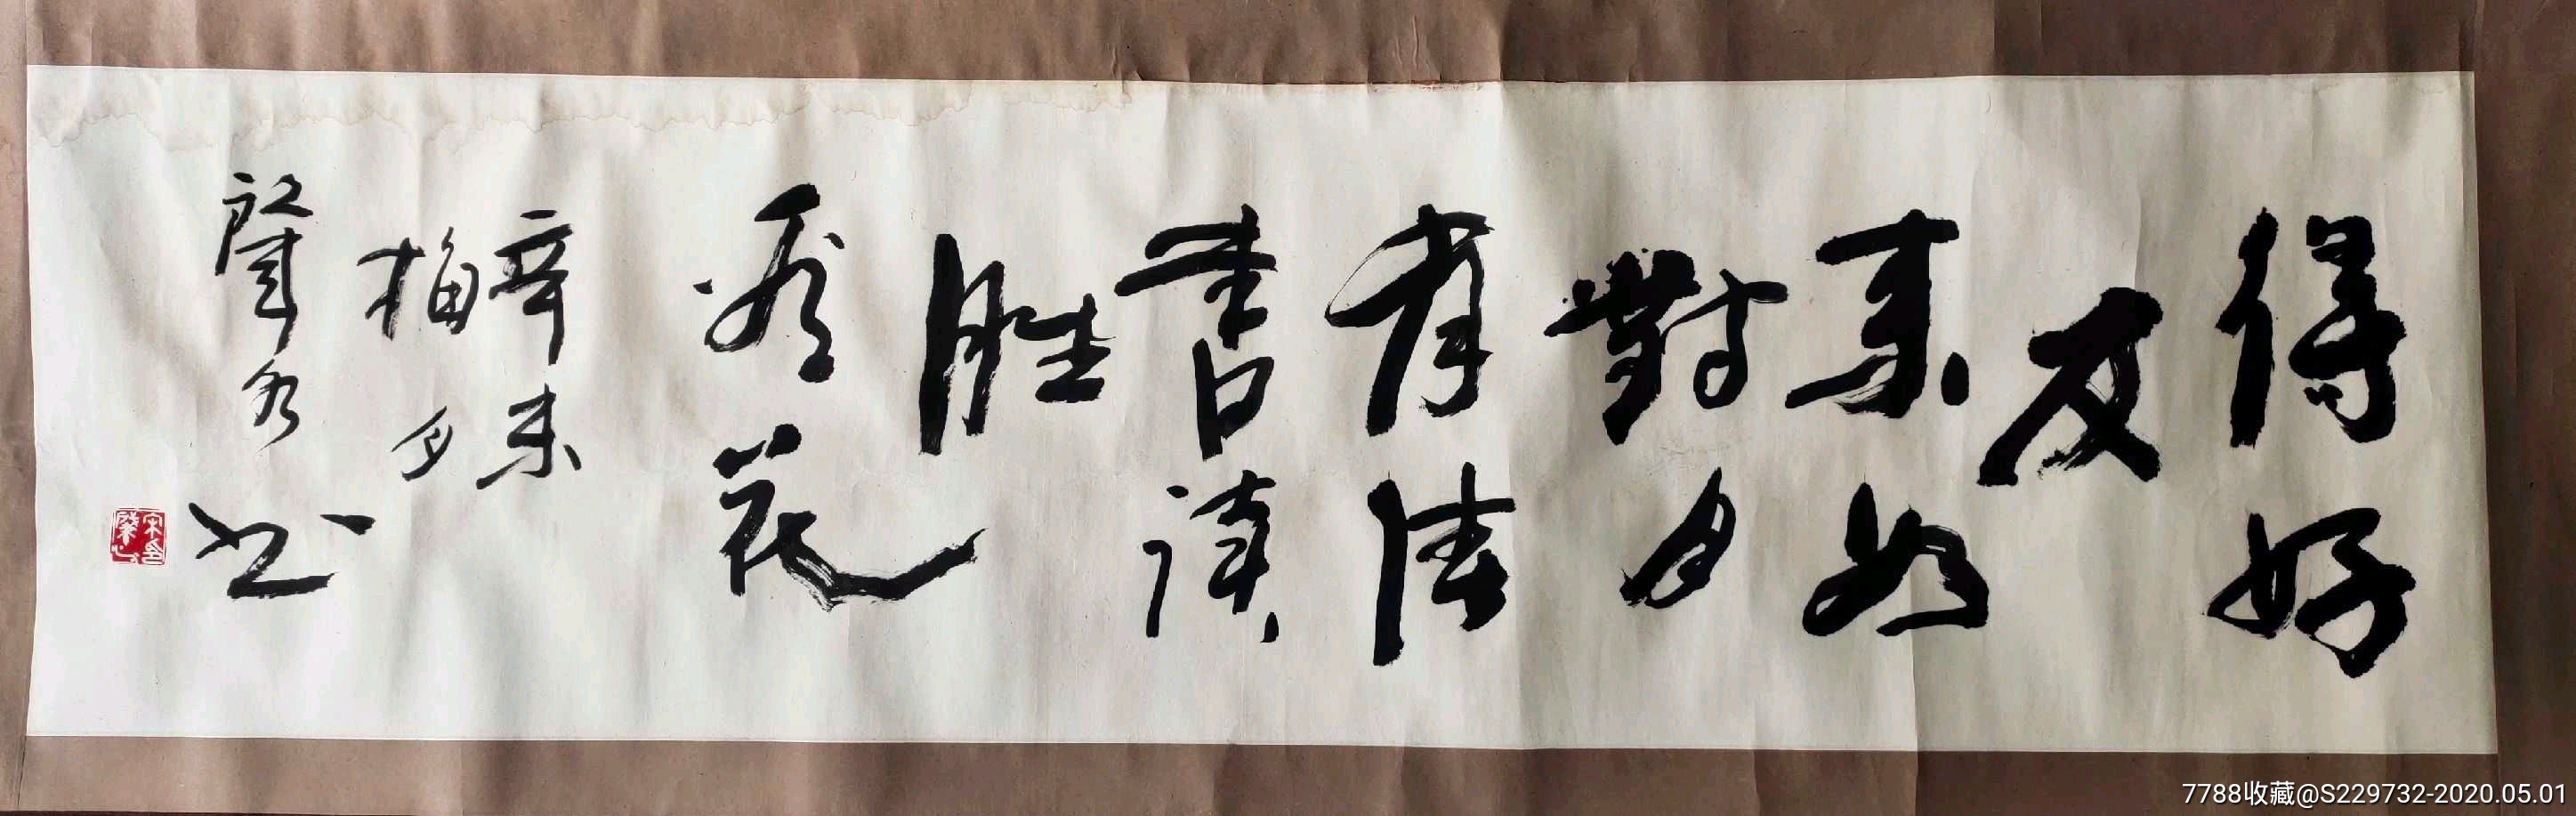 得好
友
来如
對月
有佳
書读
胜
看花
辛未
梅月
肇 书
7788收藏@S229732-2020.05.01